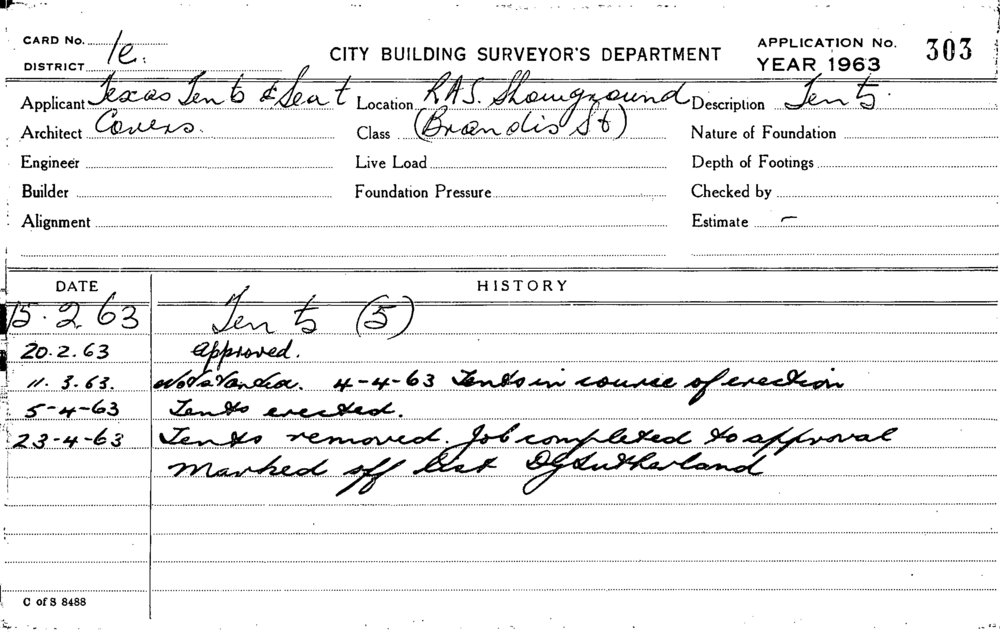 CARD No.
DISTRICT 1e.
CITY BUILDING SURVEYOR'S DEPARTMENT
APPLICATION No. 303
YEAR 1963
Applicant Texas Tents & Seat Location R.A.S. Showground Description Tents.
Architect Covers. Class (Brandis St) Nature of Foundation
Engineer Live Load Depth of Footings
Builder Foundation Pressure Checked by
Alignment Estimate –
DATE HISTORY
15.2.63 Tents (5)
20.2.63 approved.
11.3.63. 4-4-63 Tents in course of erection
5-4-63 Tents erected.
23-4-63 Tents removed. Job completed to approval
Marked off list DGSutherland
C of S 8488